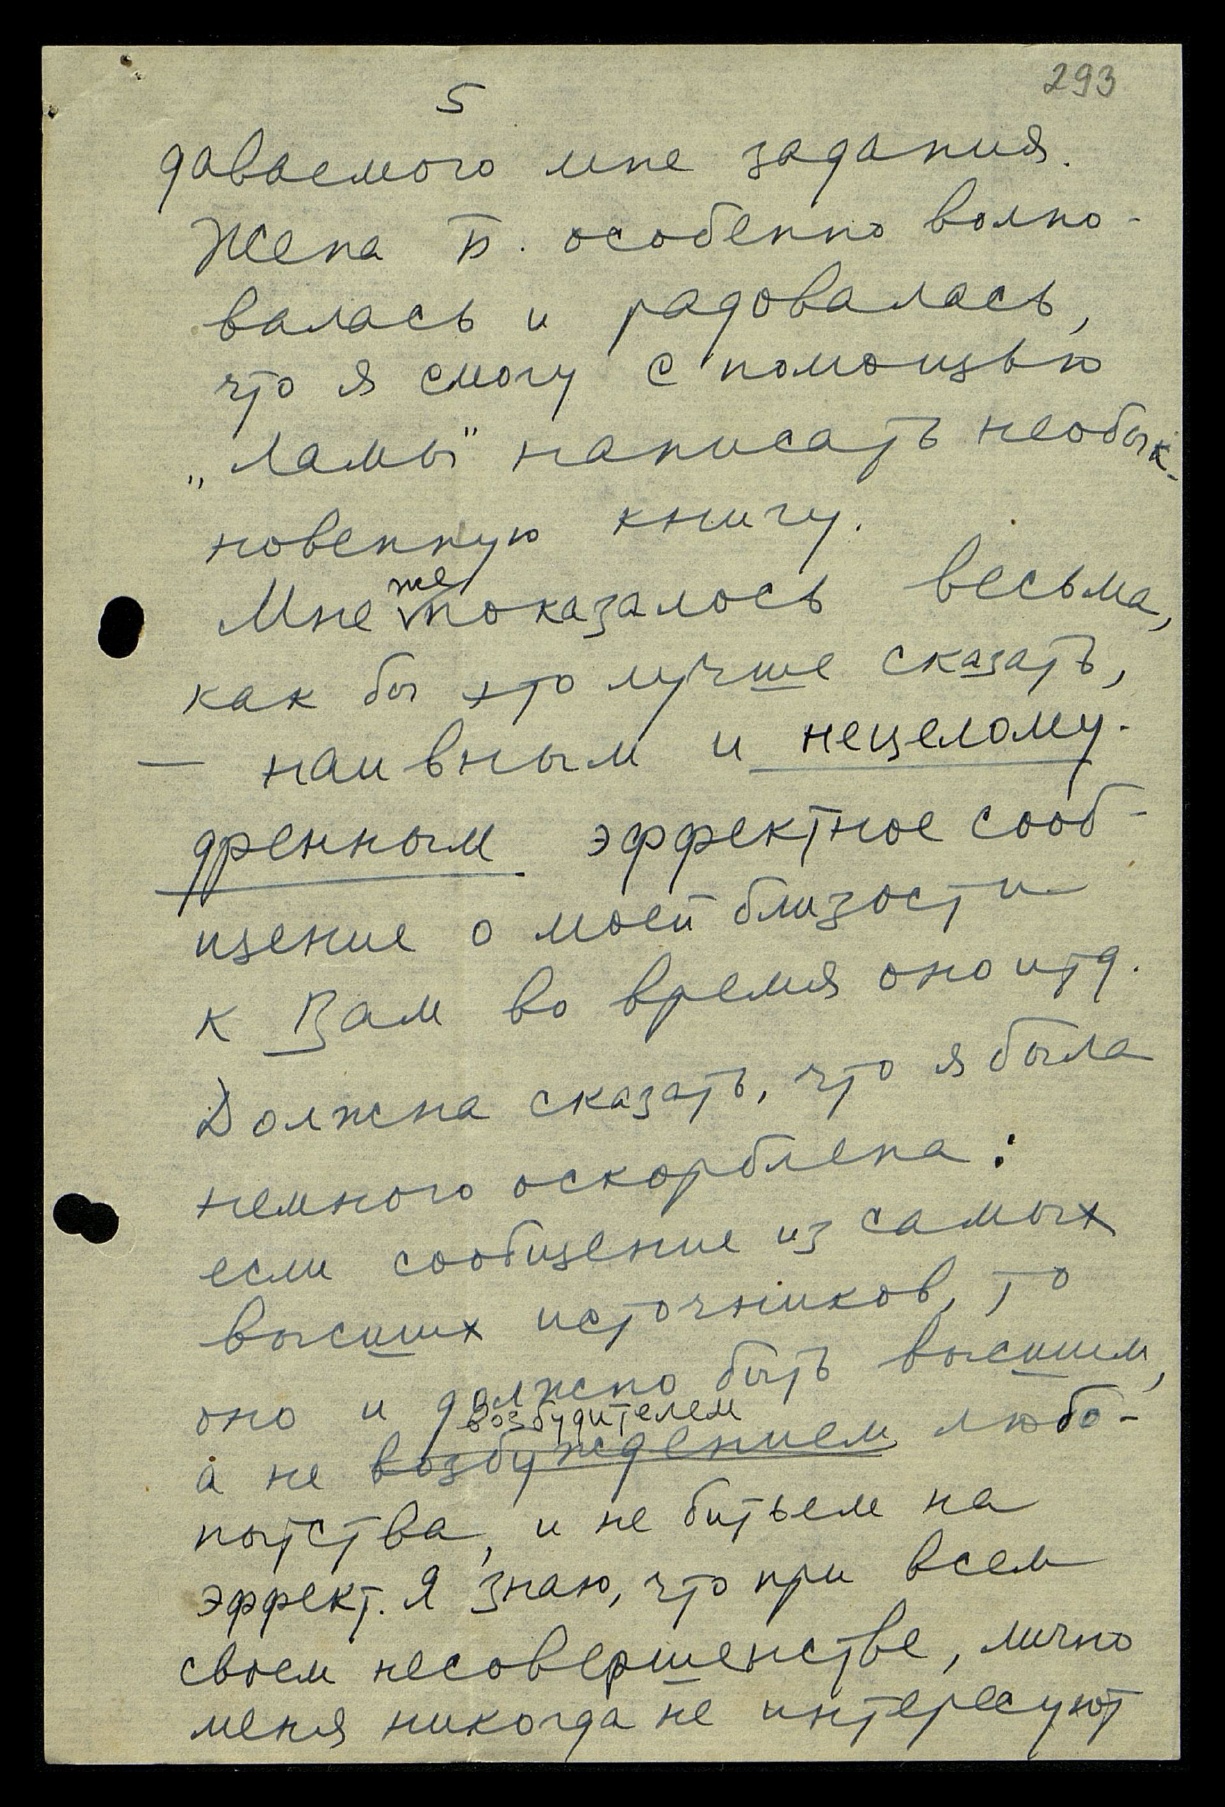 293
5
даваемого мне задания.
Жена Б. особенно волно-
валась и радовалась,
что я смогу с помощью
„ламы" написать необык-
новенную книгу.
же
Мне показалось весьма,
как бы это лучше сказать,
— наивным и нецелому-
дренным эффектное сооб-
щение о моей близости
к Вам во время оно итд.
Должна сказать, что я была
немного оскорблена:
если сообщение из самых
высших источников, то
оно и должно быть высшим,
возбудителем
а не возбуждением любо-
пытства, и не битьем на
эффект. Я знаю, что при всем
своем несовершенстве, лично
меня никогда не интересуют